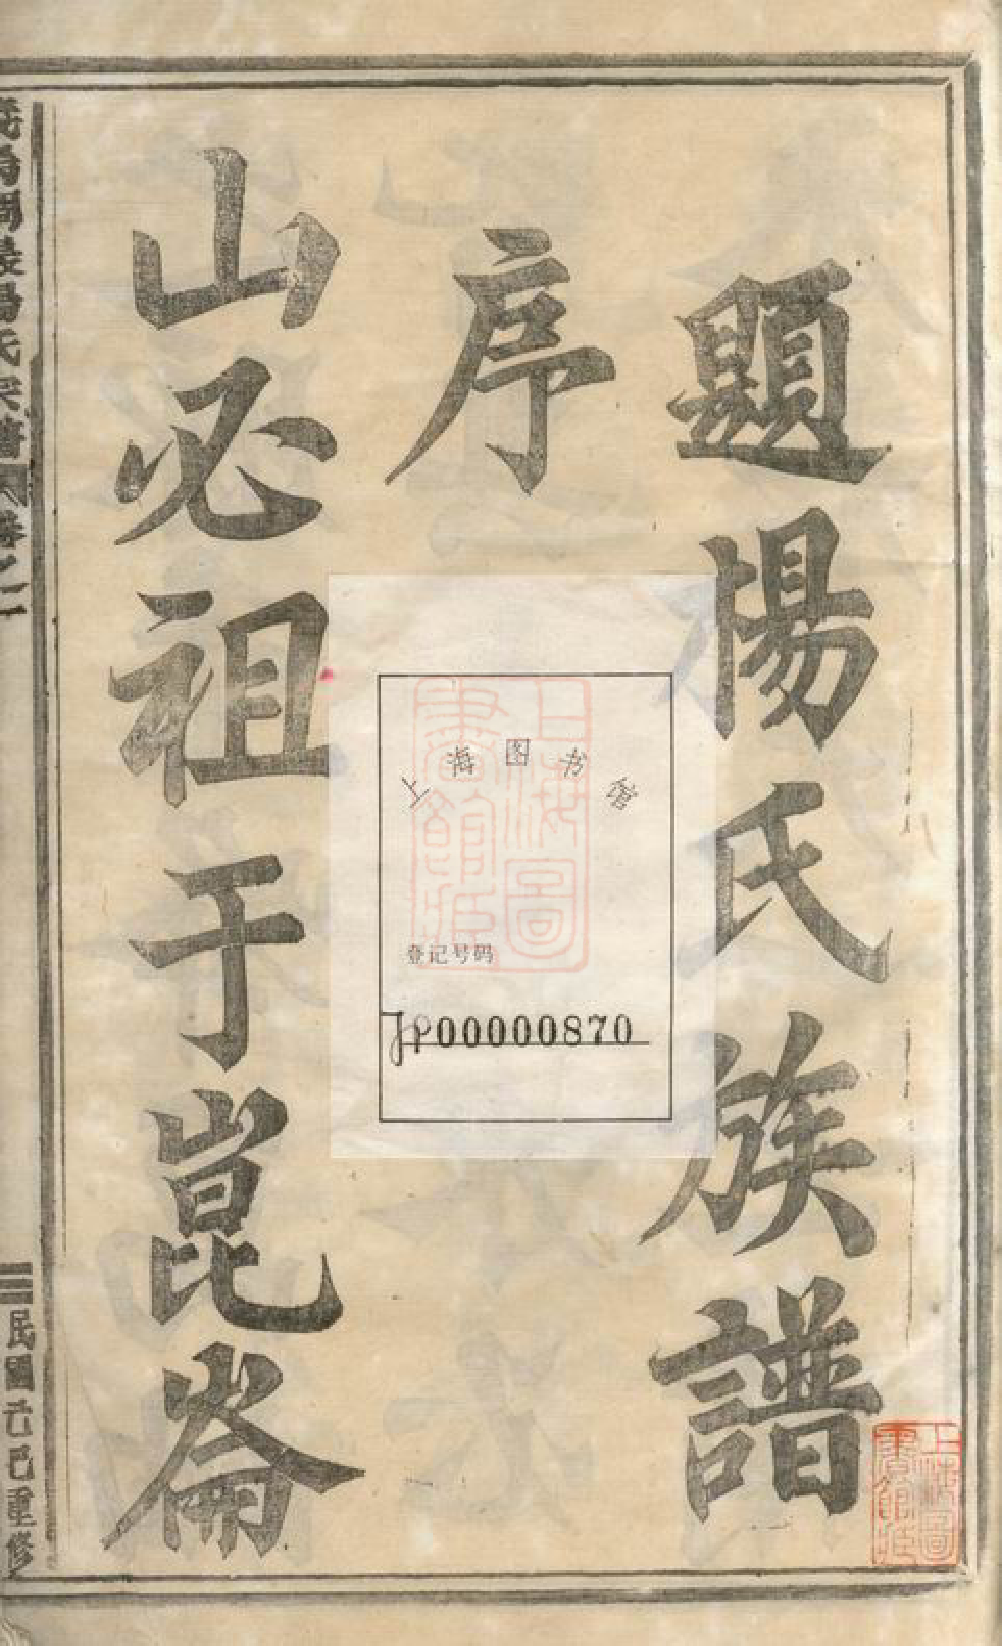 題楊氏族譜
序
山必祖于崑崙
上海图书馆
登记号码
JP00000870
上海圖書館藏
氏宗譜
卷之二
民國己巳重修
上海圖書館藏